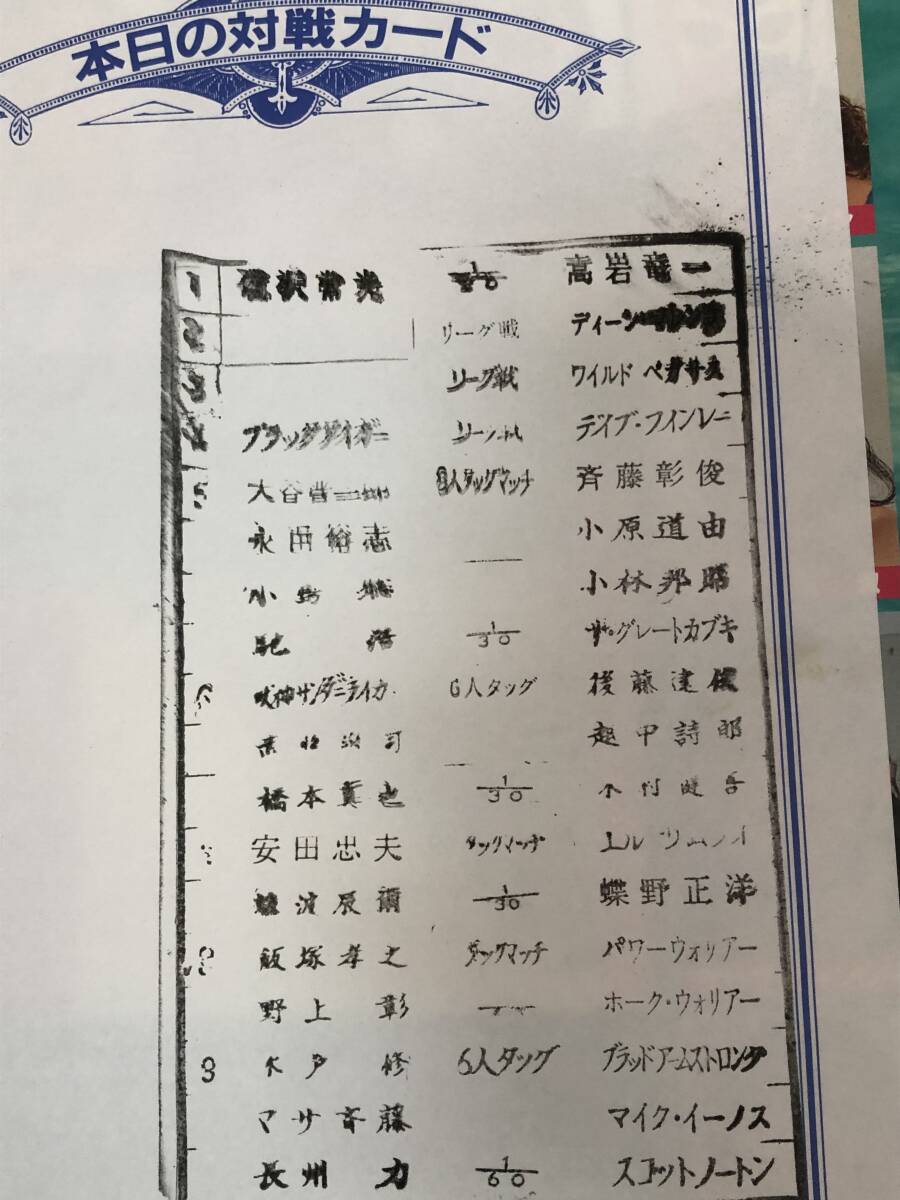 本日の対戦カード
1 沢常光 1/20 高岩竜一
2 リーグ戦 ディーン
3 リーグ戦 ワイルド ペガサス
4 ブラックタイガー リーグ戦 デイブ・フィンレー
5 大谷晋二郎 8人タッグマッチ 斉藤彰俊
永田裕志 小原道由
小島聡 小林邦昭
馳浩 1/30 ザ・グレートカブキ
6 獣神サンダーライガー 6人タッグ 後藤達俊
越中詩郎
橋本真也 1/30 木村健吾
安田忠夫 タッグマッチ エル・サムライ
藤波辰爾 1/30 蝶野正洋
8 飯塚孝之 タッグマッチ パワーウォリアー
野上彰 ホーク・ウォリアー
9 木戸修 6人タッグ ブラッドアームストロング
マサ斉藤 マイク・イーノス
長州力 1/60 スコットノートン